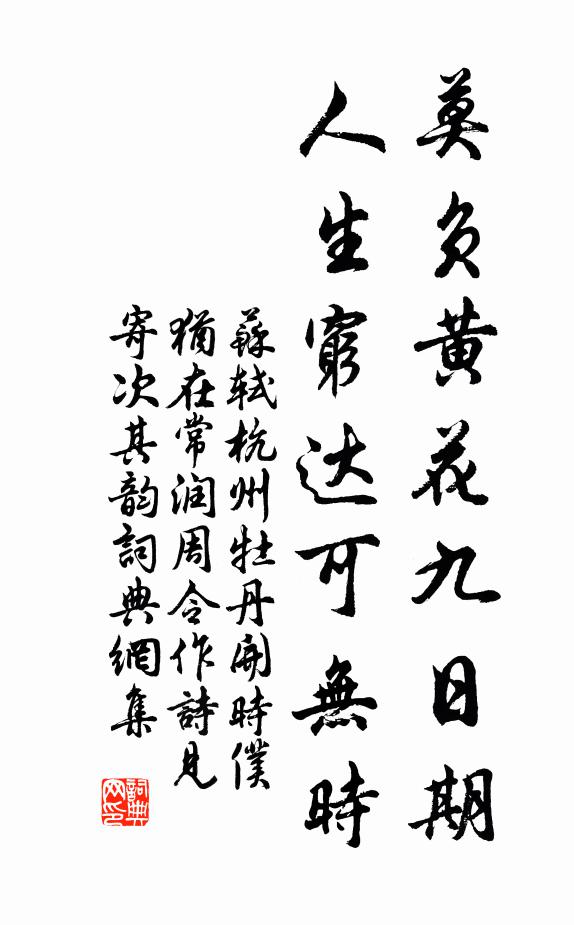 莫负黄花九日期
人生窮达可無時
蘇轼杭州牡丹開時僕
猶在常润周令作詩見
寄次其韵詞典網集
詞典網印